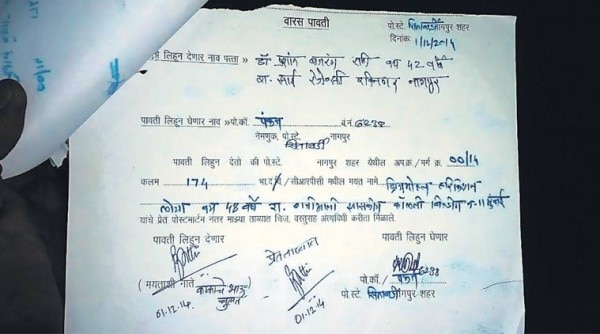 वारस पावती
पो.स्टे. सिताबर्डी नागपूर शहर
दिनांक: 1/12/2014
लिहून देणार नाव पत्ता» डॉ. प्रशांत बजरंग राठी वय 42 वर्षे
रा. साई रेजेन्सी रविनगर नागपूर
पावती लिहून घेणार नाव »पो.कॉ. पंकज ब.नं. 6238
नेमणुक, पो.स्टे. नागपूर
सिताबर्डी
पावती लिहून देतो की पो.स्टे. नागपूर शहर येथील अप.क्र./ मर्ग क्र. 00/14
कलम 174 भा.दं.वि/ सीआरपीसी मधील मयत नामे ब्रिजगोपाल हरकिशन
लोया वय 48 वर्षे रा. शासकीय कॉलनी बिल्डींग मुंबई
यांचे प्रेत पोस्टमार्टम नंतर माझ्या ताब्यात मिळाले.
पावती लिहून देणार प्रेत ताब्यात पावती लिहून घेणार
(मयताशी नाते काकाचे भाऊ पो.कॉ. 6238
चुलत) पो.स्टे. सिताबर्डी नागपूर शहर
01.12.14 01.12.14